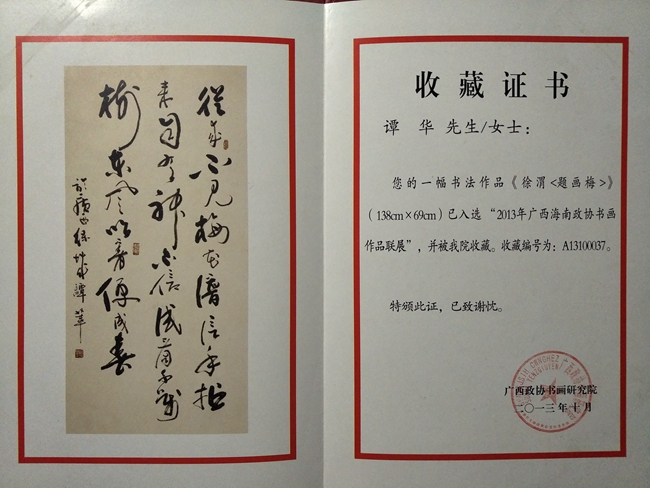 從来不见梅花谱信手拈
来自有神不信试看千万
树东风吹着便成春
收藏证书
谭 华 先生/女士：
您的一幅书法作品《徐渭<题画梅>》
（138cm×69cm）已入选“2013年广西海南政协书画
作品联展”，并被我院收藏。收藏编号为：A13100037。
特颁此证，已致谢忱。
广西政协书画研究院
二〇一三年十月